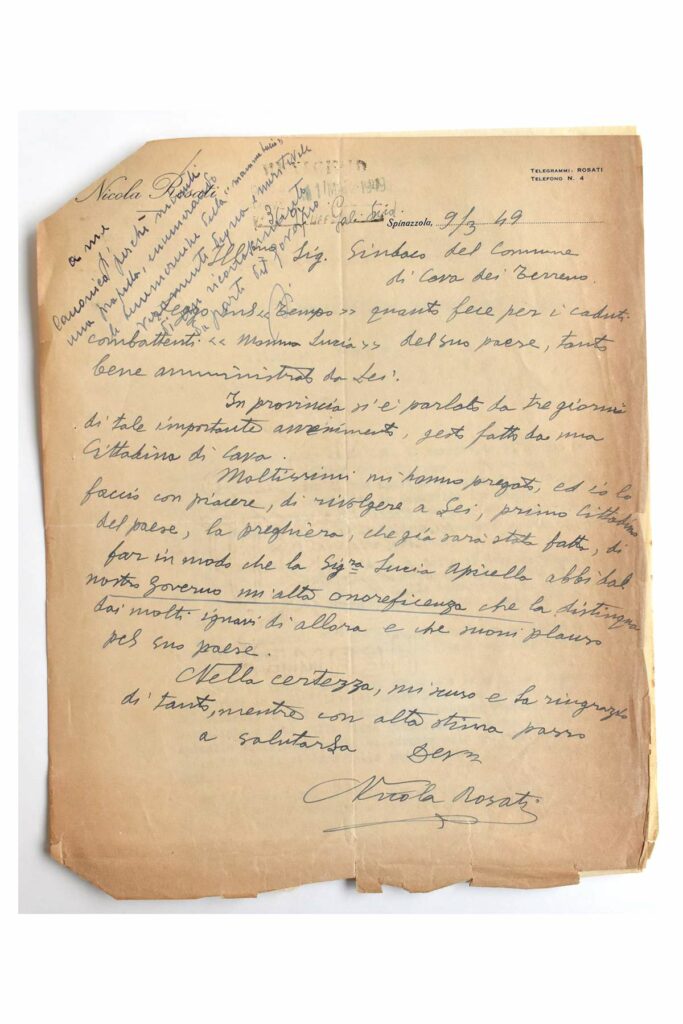 Nicola Rosati
TELEGRAMMI: ROSATI
TELEFONO N. 4
Spinazzola, 9/3 49
Ill/mo Sig. Sindaco del Comune
di Cava dei Terreno.
Leggo sul « Tempo » quanto fece per i caduti
combattenti « Mamma Lucia » del suo paese, tanto
bene amministrato da Lei.
In provincia si è parlato da tre giorni
di tale importante avvenimento, gesto fatto da una
Cittadina di Cava.
Moltissimi mi hanno pregato, ed io lo
faccio con piacere, di rivolgere a Lei, primo Cittadino
del paese, la preghiera, che già sarà stata fatta, di
far in modo che la Sig.ra Lucia Apicella abbi dal
nostro governo un'alta onoreficenza che la distingua
dai molti ignavi di allora e che suoni plauso
pel suo paese.
Nella certezza, mi scuso e la ringrazio
di tanto, mentre con alta stima passo
a salutarLa
Nicola Rosati
a me
perché
una
da parte del governo